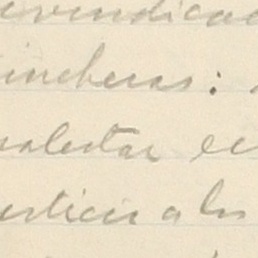 eivindicac
incheras:
alestar ec
usticia a los